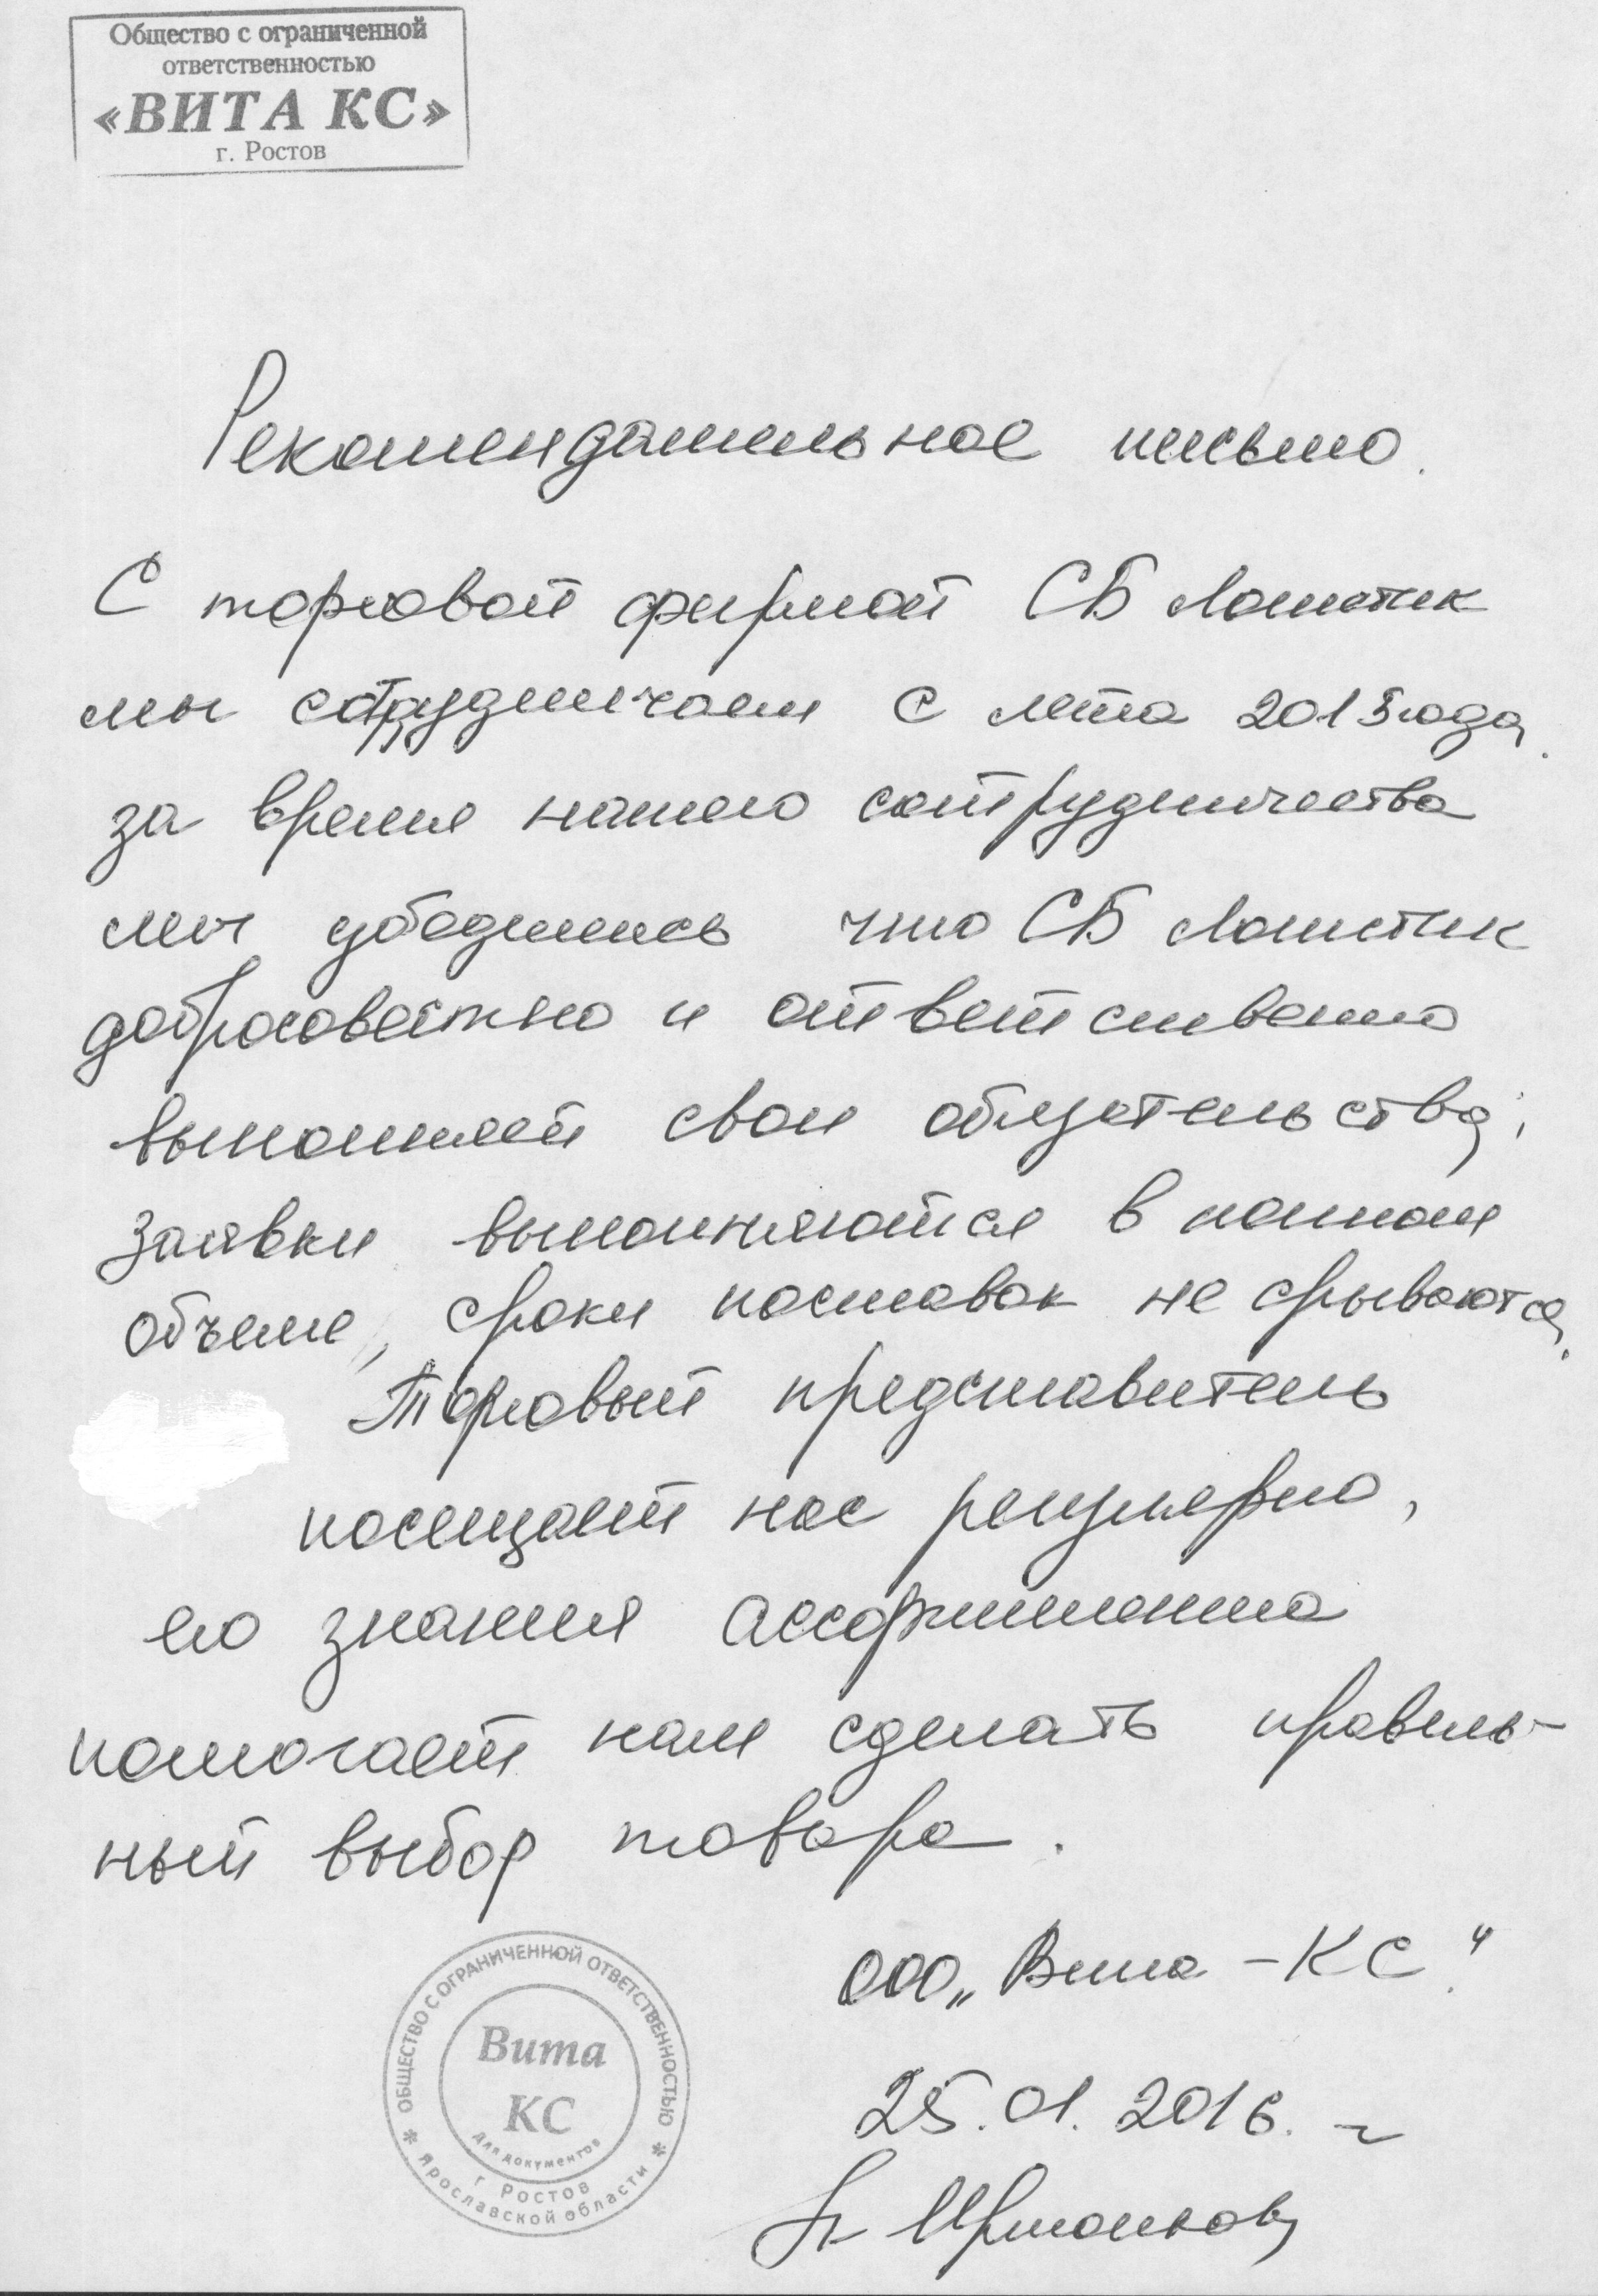 Общество с ограниченной
ответственностью
«ВИТА КС»
г. Ростов
Рекомендательное письмо.
С торговой фирмой СБ Логистик
мы сотрудничаем с лета 2015 года.
за время нашего сотрудничества
мы убедились что СБ Логистик
добросовестно и ответственно
выполняет свои обязательства;
заявки выполняются в полном
объеме, сроки поставок не срываются.
Торговый представитель
посещает нас регулярно,
его знания ассортимента
помогает нам сделать правиль-
ный выбор товара.
ООО „Вита - КС".
25.01.2016. г
ОБЩЕСТВО С ОГРАНИЧЕННОЙ ОТВЕТСТВЕННОСТЬЮ
Вита
КС
для документов
г Ростов
Ярославской области